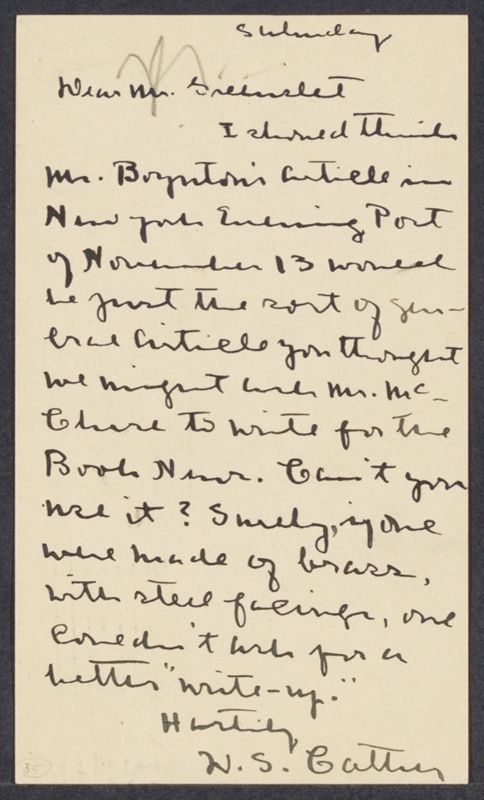 Saturday
Dear Mr. Greenslet
I should think
Mr. Boynton's article in
New York Evening Post
of November 13 would
be just the sort of gen-
eral article you thought
we might ask Mr. Mc-
Clure to write for the
Book News. Can't you
use it? Surely, if one
were made of brass,
with steel facings, one
couldn't ask for a
better "write-up."
Hastily
W. S. Cather
35